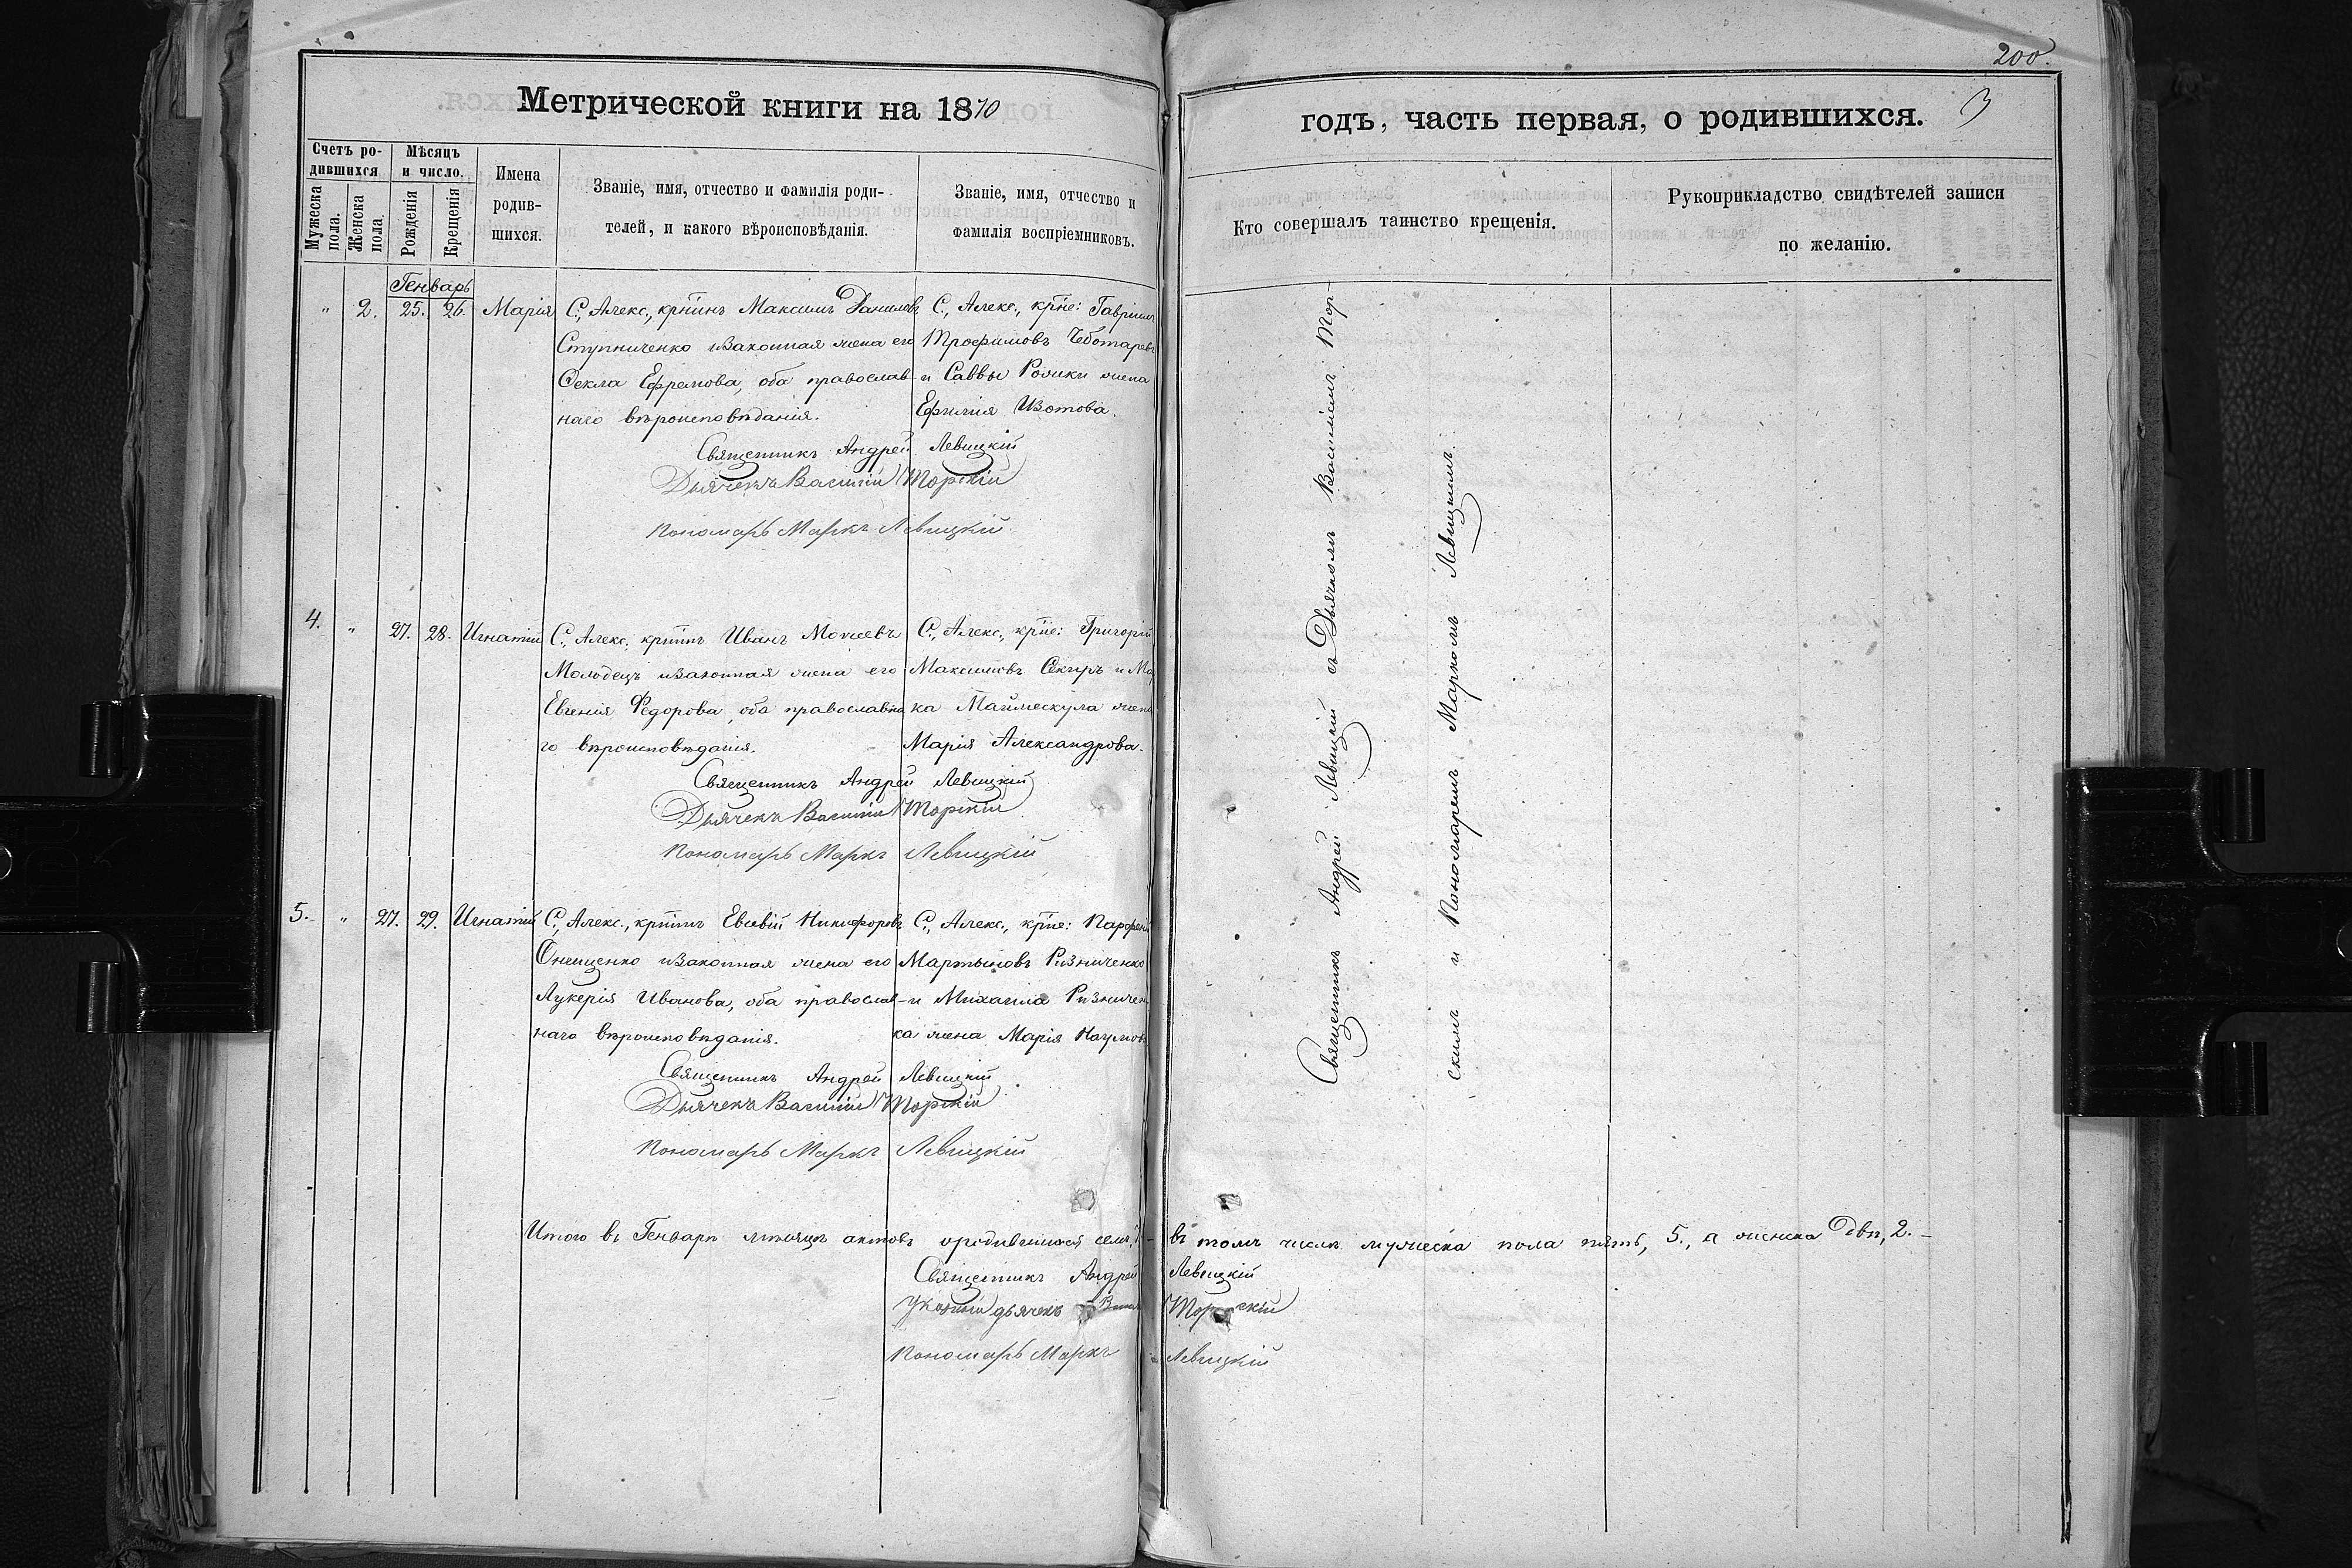 200.
Метрической книги на 1870
годъ, часть первая, о родившихся.
3
Счетъ ро-
дившихся
Мужеска
пола.
Женска
пола.
Мѣсяцъ
и число.
Рожденія
Крещенія
Имена
родив-
шихся.
Званіе, имя, отчество и фамилія роди-
телей, и какого вѣроисповѣданія.
Званіе, имя, отчество и
фамилія воспріемниковъ.
Кто совершалъ таинство крещенія.
Рукоприкладство свидѣтелей записи
по желанію.
Генварь
" 2. 25. 26. Марія
С., Алекс., крнинъ Максимъ Даниловъ
Ступниченко и законная жена его
Ѳекла Ефремова, оба православ-
наго вѣроисповѣданія.
С., Алекс., крне: Гавріилъ
Трофимовъ Чеботаревъ
и Саввы жена
Ефимія Изотова.
Священникъ Андрей Левицкій
Дьячекъ Василій Торскій
Пономарь Маркъ Левицкій
4. " 27. 28. Игнатій
С., Алекс., крнинъ Иванъ Моисеевъ
Молодецъ и законная жена его
Евгенія Федорова, оба православна
го вѣроисповѣданія.
С., Алекс., крне: Григорій
Максимовъ Секиръ и Мар
ка жена
Марія Александрова.
Священникъ Андрей Левицкій
Дьячекъ Василій Торскій
Пономарь Маркъ Левицкій
5. " 27. 29. Игнатій
С., Алекс., крнинъ Евсевій Никифоровъ
Онищенко и законная жена его
Лукерія Иванова, оба православ-
наго вѣроисповѣданія.
С., Алекс., крне: Парфеній
Мартыновъ Ризниченко
и Михаила Ризничен
ка жена Марія Наумов
Священникъ Андрей Левицкій
Дьячекъ Василій Торскій
Пономарь Маркъ Левицкій
Священникъ Андрей Левицкій съ Дьячкомъ Василіемъ Тор-
скимъ и Пономаремъ Маркомъ Левицкимъ.
Итого въ Генварѣ мѣсяцѣ актовъ о родившихся семь, 7 - въ томъ числѣ мужеска пола пять, 5., а женска двѣ, 2. -
Священникъ Андрей Левицкій
Указный дьячекъ Торскій
Пономарь Маркъ Левицкій